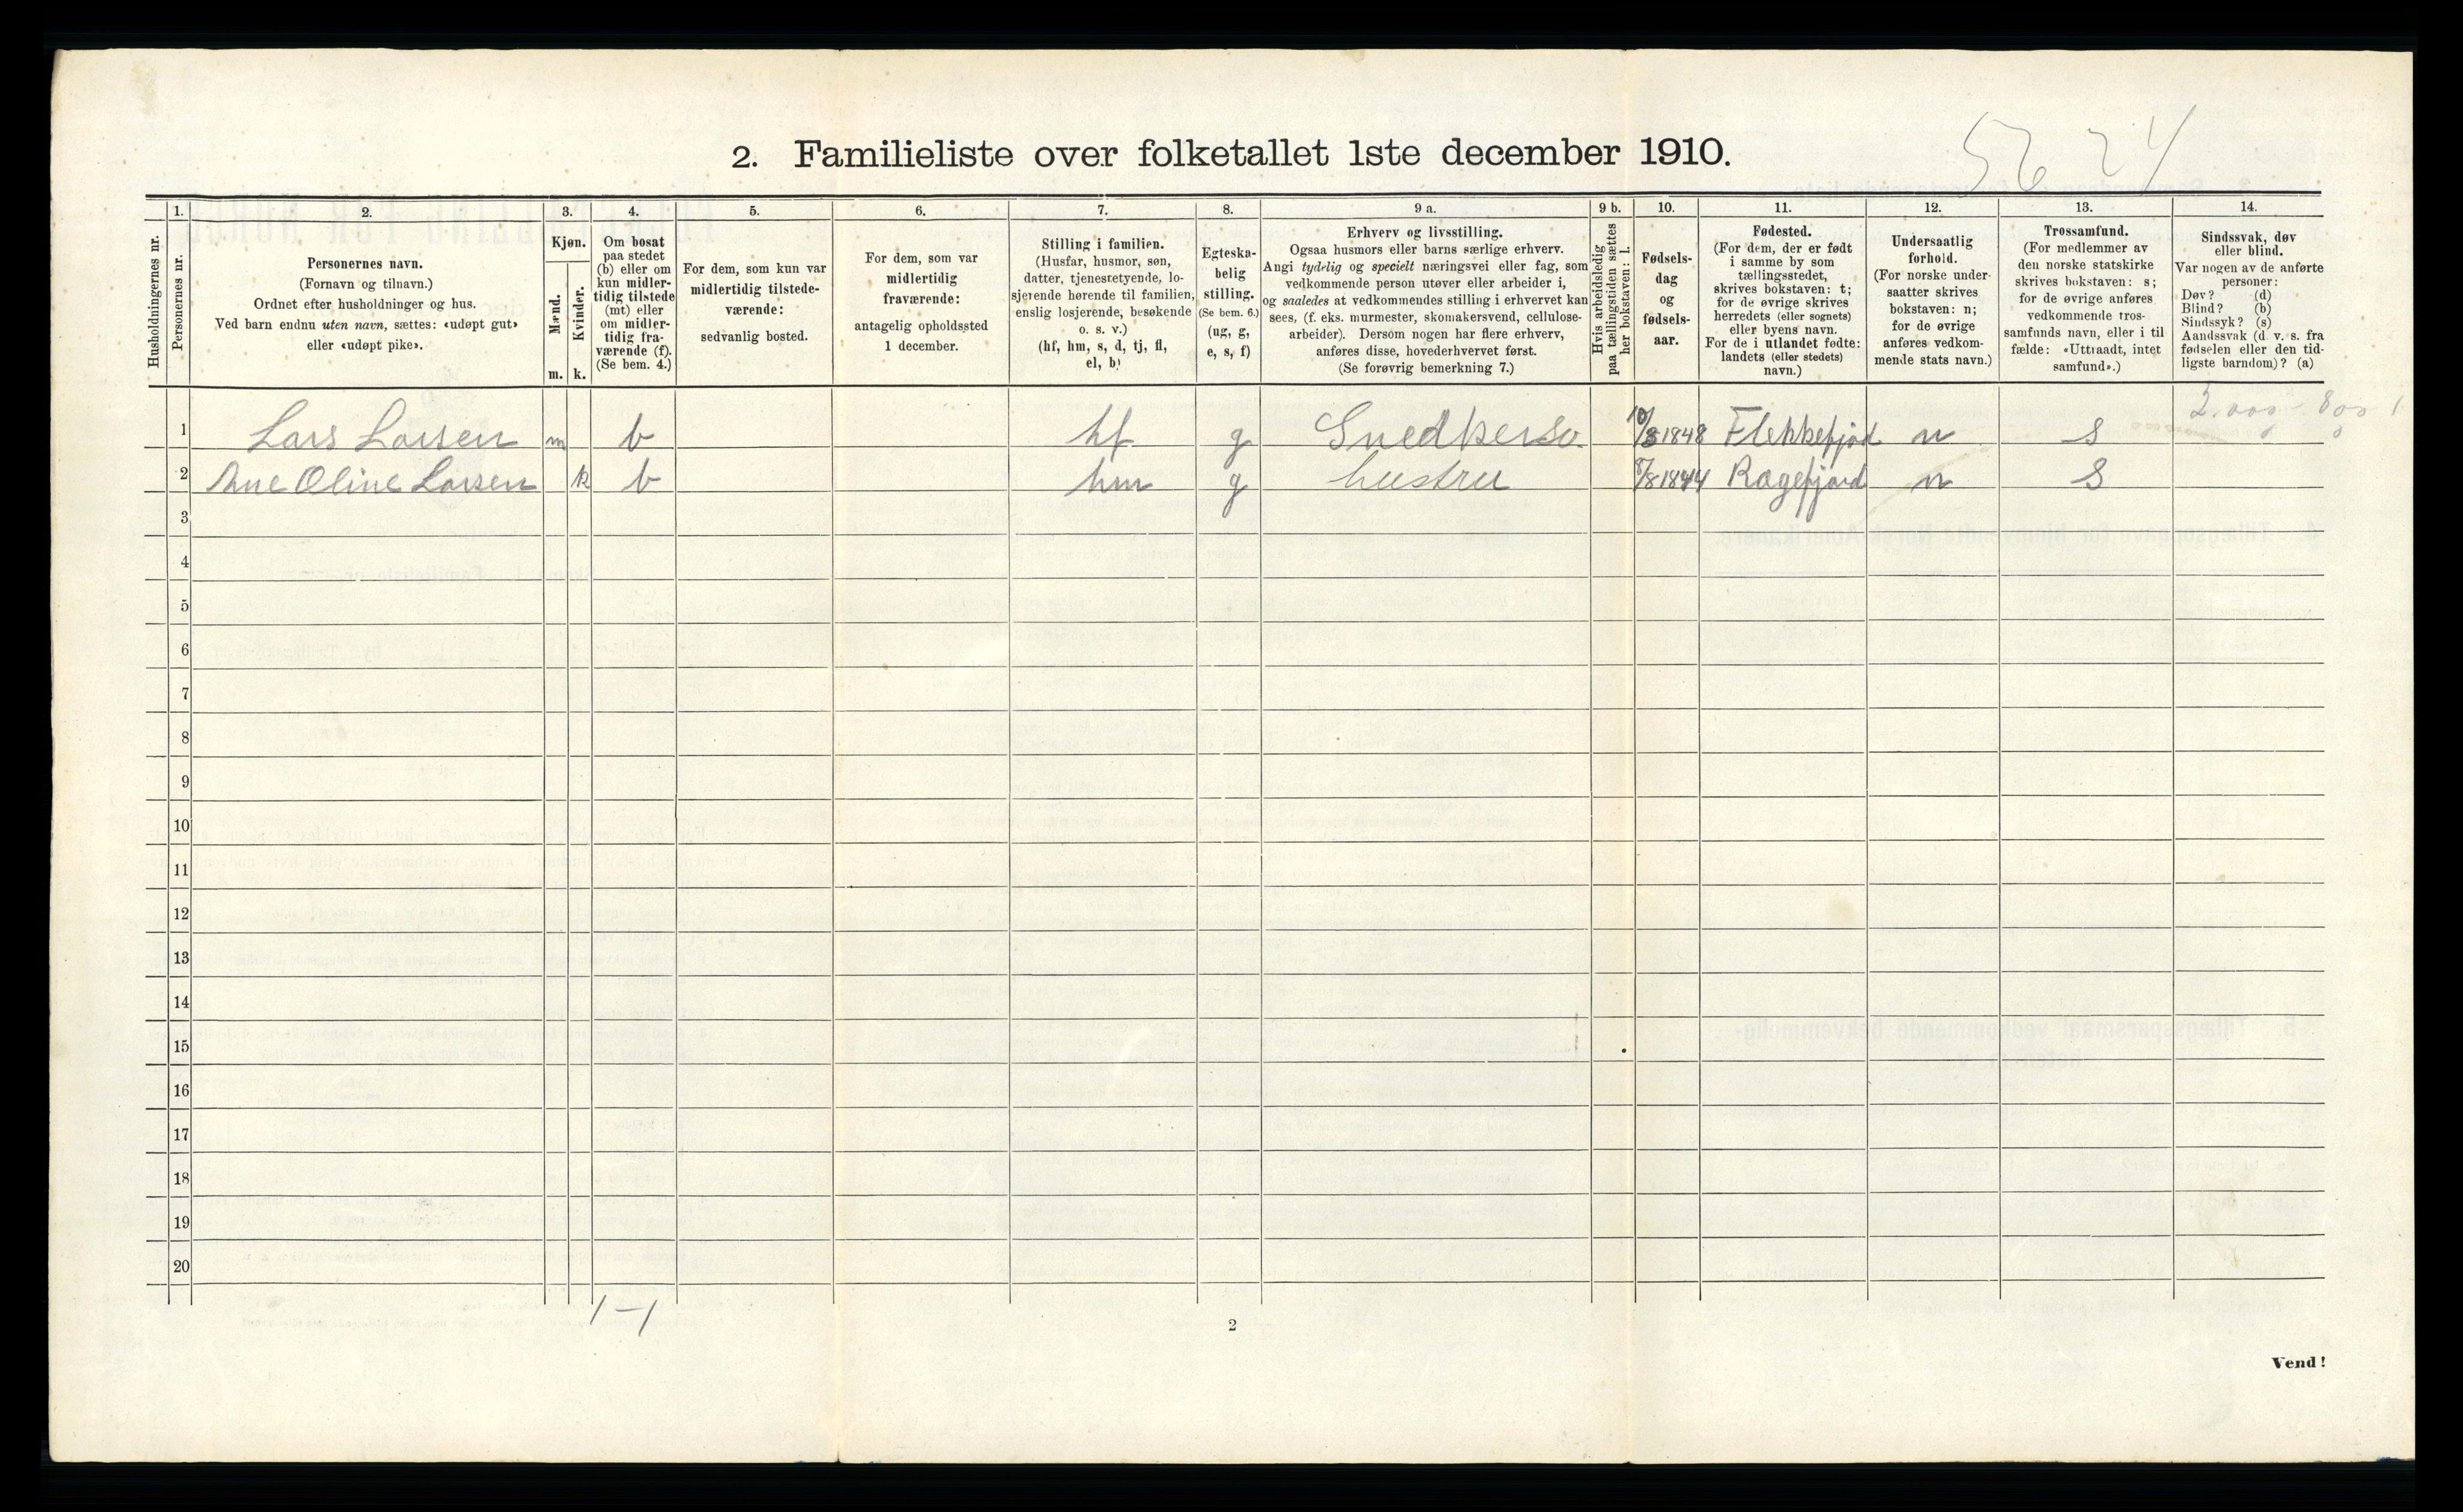 56 24
2. Familieliste over folketallet 1ste december 1910.
Husholdningernes nr.
1.
Personernes nr.
2.
Personernes navn.
(Fornavn og tilnavn.)
Ordnet efter husholdninger og hus.
Ved barn endnu uten navn, sættes: «udøpt gut»
eller «udøpt pike».
3.
Kjøn.
Mænd.
Kvinder.
m. k.
4.
Om bosat
paa stedet
(b) eller om
kun midler-
tidig tilstede
(mt) eller
om midler-
tidig fra-
værende (f).
(Se bem. 4.)
5.
For dem, som kun var
midlertidig tilstede-
værende:
sedvanlig bosted.
6.
For dem, som var
midlertidig
fraværende:
antagelig opholdssted
1 december.
7.
Stilling i familien.
(Husfar, husmor, søn,
datter, tjenestetyende, lo-
sjerende hørende til familien,
enslig losjerende, besøkende
o. s. v.)
(hf, hm, s, d, tj, fl,
el, b)
8.
Egteska-
belig
stilling.
(Se bem. 6.)
(ug, g,
e, s, f)
9 a.
Erhverv og livsstilling.
Ogsaa husmors eller barns særlige erhverv.
Angi tydelig og specielt næringsvei eller fag, som
vedkommende person utøver eller arbeider i,
og saaledes at vedkommendes stilling i erhvervet kan
sees, (f. eks. murmester, skomakersvend, cellulose-
arbeider). Dersom nogen har flere erhverv,
anføres disse, hovederhvervet først.
(Se forøvrig bemerkning 7.)
9 b.
Hvis arbeidsledig
paa tællingstiden sættes
her bokstaven: l.
10.
Fødsels-
dag
og
fødsels-
aar.
11.
Fødested.
(For dem, der er født
i samme by som
tællingsstedet,
skrives bokstaven: t;
for de øvrige skrives
herredets (eller sognets)
eller byens navn.
For de i utlandet fødte:
landets (eller stedets)
navn.)
12.
Undersaatlig
forhold.
(For norske under-
saatter skrives
bokstaven: n;
for de øvrige
anføres vedkom-
mende stats navn.)
13.
Trossamfund.
(For medlemmer av
den norske statskirke
skrives bokstaven: s;
for de øvrige anføres
vedkommende tros-
samfunds navn, eller i til
fælde: «Uttraadt, intet
samfund».)
14.
Sindssvak, døv
eller blind.
Var nogen av de anførte
personer:
Døv? (d)
Blind? (b)
Sindssyk? (s)
Aandssvak (d. v. s. fra
fødselen eller den tid-
ligste barndom)? (a)
1 Lars Larsen m b hf g Snedker 10/8 1848 Flekkefjord n S
2 Ane Oline Larsen k b hm g hustru 8/8 1844 Ragefjord n S
3
4
5
6
7
8
9
10
11
12
13
14
15
16
17
18
19
20
1 – 1
2
Vend!